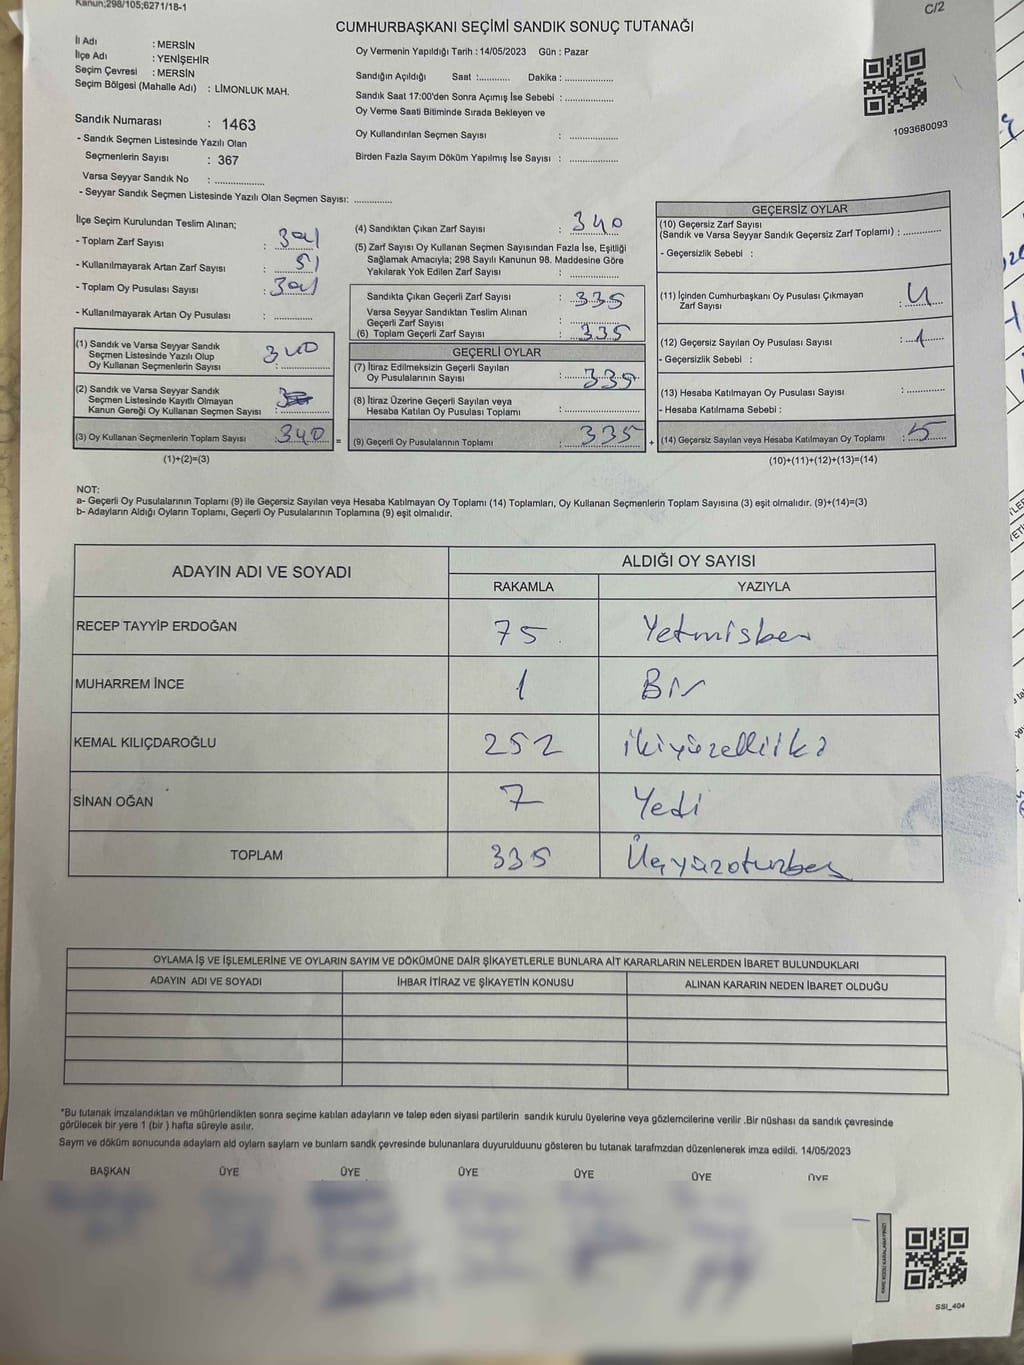 Kanun;298/105;6271/18-1
C/2
CUMHURBAŞKANI SEÇİMİ SANDIK SONUÇ TUTANAĞI
İl Adı : MERSİN
İlçe Adı : YENİŞEHİR
Seçim Çevresi : MERSİN
Seçim Bölgesi (Mahalle Adı) : LİMONLUK MAH.
Sandık Numarası : 1463
- Sandık Seçmen Listesinde Yazılı Olan
Seçmenlerin Sayısı : 367
Varsa Seyyar Sandık No : ..................
- Seyyar Sandık Seçmen Listesinde Yazılı Olan Seçmen Sayısı: ..............
Oy Vermenin Yapıldığı Tarih : 14/05/2023 Gün : Pazar
Sandığın Açıldığı Saat :............ Dakika : ..................
Sandık Saat 17:00'den Sonra Açımış İse Sebebi : ..................
Oy Verme Saati Bitiminde Sırada Bekleyen ve
Oy Kullandırılan Seçmen Sayısı : ..................
Birden Fazla Sayım Döküm Yapılmış İse Sayısı : ..................
1093680093
İlçe Seçim Kurulundan Teslim Alınan;
- Toplam Zarf Sayısı :
- Kullanılmayarak Artan Zarf Sayısı : 51
- Toplam Oy Pusulası Sayısı :
- Kullanılmayarak Artan Oy Pusulası : ..............
(1) Sandık ve Varsa Seyyar Sandık
Seçmen Listesinde Yazılı Olup
Oy Kullanan Seçmenlerin Sayısı : 340
(2) Sandık ve Varsa Seyyar Sandık
Seçmen Listesinde Kayıtlı Olmayan
Kanun Gereği Oy Kullanan Seçmen Sayısı :
(3) Oy Kullanan Seçmenlerin Toplam Sayısı : 340 =
(1)+(2)=(3)
(4) Sandıktan Çıkan Zarf Sayısı : 340
(5) Zarf Sayısı Oy Kullanan Seçmen Sayısından Fazla İse, Eşitliği
Sağlamak Amacıyla; 298 Sayılı Kanunun 98. Maddesine Göre
Yakılarak Yok Edilen Zarf Sayısı : ..............
Sandıkta Çıkan Geçerli Zarf Sayısı : 335
Varsa Seyyar Sandıktan Teslim Alınan
Geçerli Zarf Sayısı : ..............
(6) Toplam Geçerli Zarf Sayısı : 335
GEÇERLİ OYLAR
(7) İtiraz Edilmeksizin Geçerli Sayılan
Oy Pusulalarının Sayısı : 335
(8) İtiraz Üzerine Geçerli Sayılan veya
Hesaba Katılan Oy Pusulası Toplamı : ..................
(9) Geçerli Oy Pusulalarının Toplamı : 335 +
GEÇERSİZ OYLAR
(10) Geçersiz Zarf Sayısı
(Sandık ve Varsa Seyyar Sandık Geçersiz Zarf Toplamı) : ..............
- Geçersizlik Sebebi :
(11) İçinden Cumhurbaşkanı Oy Pusulası Çıkmayan
Zarf Sayısı : 4
(12) Geçersiz Sayılan Oy Pusulası Sayısı : 1
- Geçersizlik Sebebi :
(13) Hesaba Katılmayan Oy Pusulası Sayısı : ..............
- Hesaba Katılmama Sebebi :
(14) Geçersiz Sayılan veya Hesaba Katılmayan Oy Toplamı : 5
(10)+(11)+(12)+(13)=(14)
NOT:
a- Geçerli Oy Pusulalarının Toplamı (9) ile Geçersiz Sayılan veya Hesaba Katılmayan Oy Toplamı (14) Toplamları, Oy Kullanan Seçmenlerin Toplam Sayısına (3) eşit olmalıdır. (9)+(14)=(3)
b- Adayların Aldığı Oyların Toplamı, Geçerli Oy Pusulalarının Toplamına (9) eşit olmalıdır.
ADAYIN ADI VE SOYADI ALDIĞI OY SAYISI
RAKAMLA YAZIYLA
RECEP TAYYİP ERDOĞAN 75 Yetmişbeş
MUHARREM İNCE 1 Bir
KEMAL KILIÇDAROĞLU 252 ikiyüzelliiki
SİNAN OĞAN 7 Yedi
TOPLAM 335 Üçyüzotuzbeş
OYLAMA İŞ VE İŞLEMLERİNE VE OYLARIN SAYIM VE DÖKÜMÜNE DAİR ŞİKAYETLERLE BUNLARA AİT KARARLARIN NELERDEN İBARET BULUNDUKLARI
ADAYIN ADI VE SOYADI İHBAR İTİRAZ VE ŞİKAYETİN KONUSU ALINAN KARARIN NEDEN İBARET OLDUĞU
*Bu tutanak imzalandıktan ve mühürlendikten sonra seçime katılan adayların ve talep eden siyasi partilerin sandık kurulu üyelerine veya gözlemcilerine verilir .Bir nüshası da sandık çevresinde
görülecek bir yere 1 (bir ) hafta süreyle asılır.
Sayım ve döküm sonucunda adayların ald oyların sayların ve bunların sandk çevresinde bulunanlara duyurulduunu gösteren bu tutanak tarafmzdan düzenlenerek imza edildi. 14/05/2023
BAŞKAN ÜYE ÜYE ÜYE ÜYE ÜYE ÜYE
SSI_404